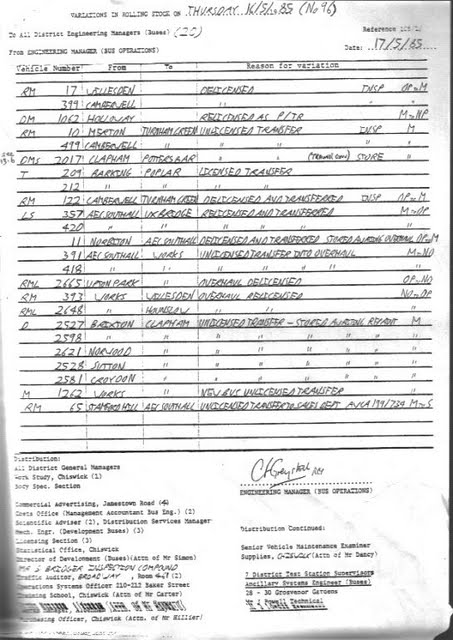 VARIATIONS IN ROLLING STOCK ON THURSDAY 16/5/1985 (No 96)
To All District Engineering Managers (Buses) (20)
Reference
From ENGINEERING MANAGER (BUS OPERATIONS) Date: 17/5/85.
Vehicle Number From To Reason for variation
RM 17 WILLESDEN DELICENSED INSP OP=M
399 CAMBERWELL " " "
DM 1062 HOLLOWAY RELICENSED AS P/TR M=OP
RM 10 MERTON TURNHAM GREEN UNLICENSED TRANSFER INSP M
499 CAMBERWELL " " " " "
DMS 2017 CLAPHAM POTTERS BAR " " STORE "
T 209 BARKING POPLAR LICENSED TRANSFER
212 " " " "
RM 122 CAMBERWELL TURNHAM GREEN DELICENSED AND TRANSFERRED INSP OP=M
LS 357 AEC SOUTHALL UXBRIDGE RELICENSED AND TRANSFERRED M=OP
420 " " " " " "
11 NORBITON AEC SOUTHALL DELICENSED AND TRANSFERRED STORED AWAITING OVERHAUL OP=M
391 AEC SOUTHALL WORKS UNLICENSED TRANSFER INTO OVERHAUL M=NO
418 " " " " " "
RML 2665 UPTON PARK OVERHAUL DELICENSED OP=NO
RM 393 WORKS WILLESDEN OVERHAUL RELICENSED NO=OP
RML 2648 " HOUNSLOW " " "
D 2527 BRIXTON CLAPHAM UNLICENSED TRANSFER - STORED AWAITING REPAINT M
2598 " " " " " " " "
2621 NORWOOD " " " " " " "
2528 SUTTON " " " " " " "
2581 CROYDON " " " " " " "
M 1262 WORKS " NEW BUS UNLICENSED TRANSFER "
RM 65 STAMFORD HILL AEC SOUTHALL UNLICENSED TRANSFER TO SALES DEPT AUCA 199/734 M=S
Distribution:
All District General Managers
Work Study, Chiswick (1)
Body Spec. Section
ENGINEERING MANAGER (BUS OPERATIONS)
Commercial Advertising, Jamestown Road (4)
Costs Office (Management Accountant Bus Eng.) (2)
Scientific Adviser (2), Distribution Services Manager
Mech. Engr. (Development Buses) (3)
Licensing Section (3)
Statistical Office, Chiswick
Director of Development (Buses)(Attn of Mr Simon)
INSPECTION COMPOUND
Traffic Auditor, BROADWAY, Room
Operations Systems Engineer 210-212 Baker Street
Training School, Chiswick (Attn of Mr Carter)
Purchasing Officer, Chiswick (Attn. of Mr Hillier)
Distribution Continued:
Senior Vehicle Maintenance Examiner
Supplies, CHISWICK (Attn of Mr Dancy)
7 District Test Station Supervisors
Ancillary Systems Engineer (Buses)
28 - 30 Grosvenor Gardens
Mr J Powell Technical